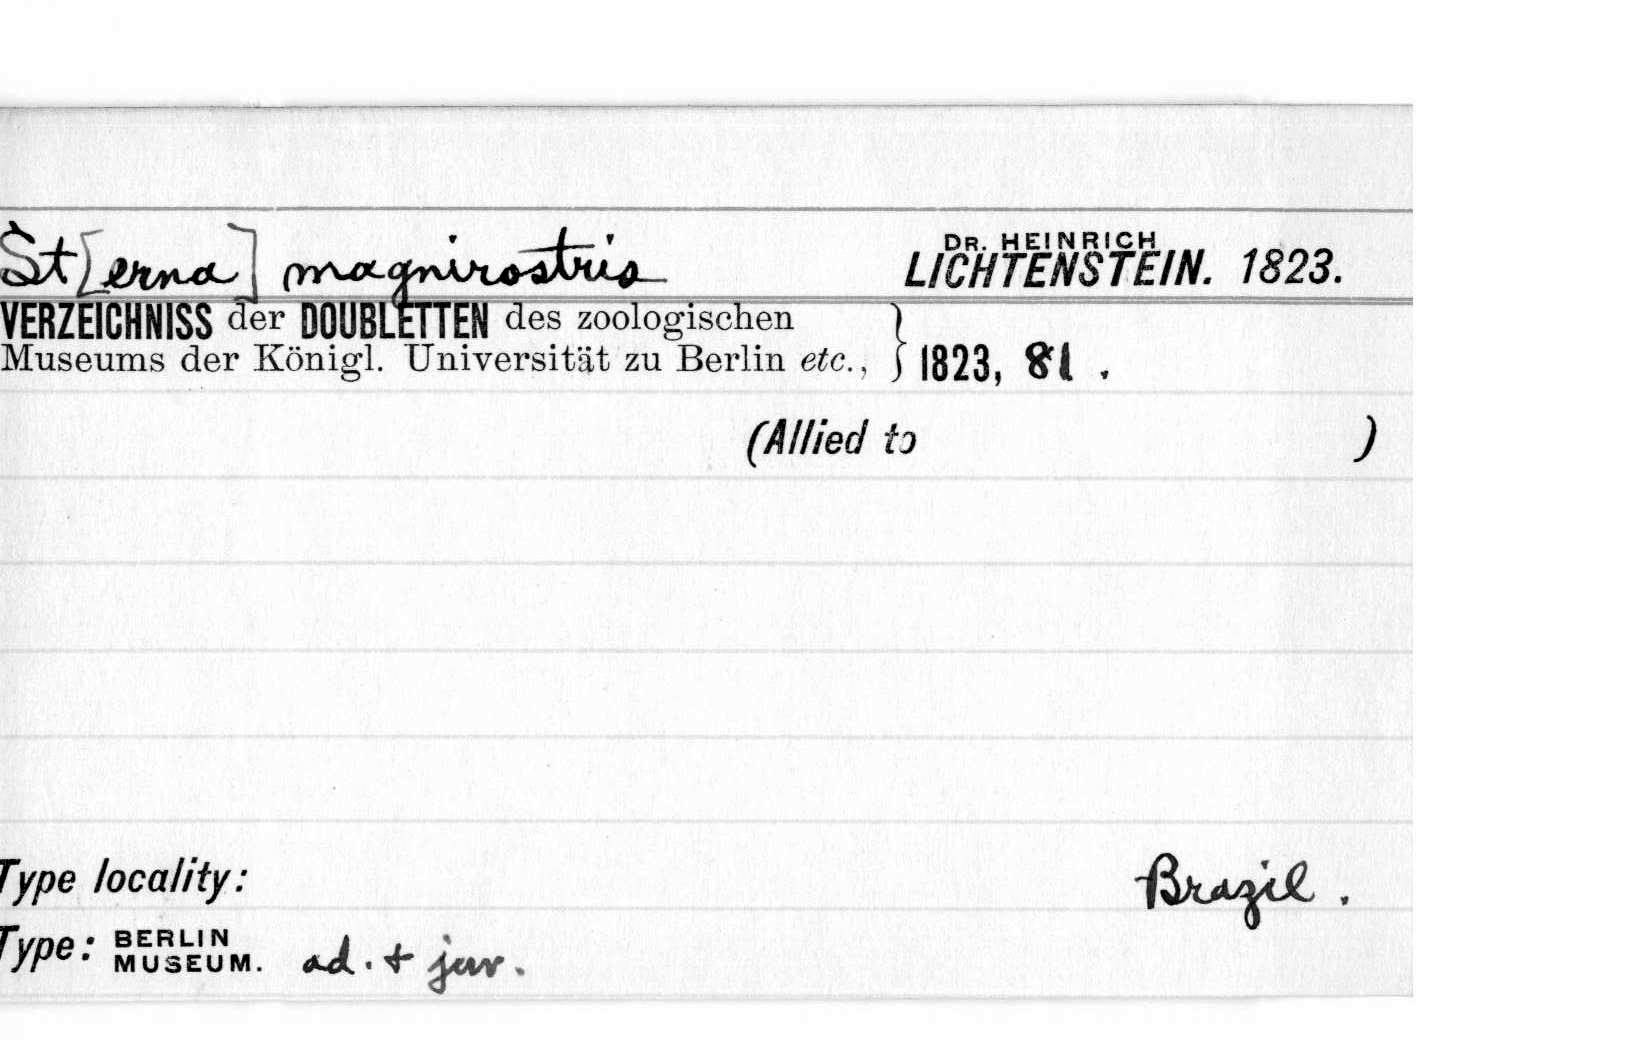 St[erna] magnirostris DR. HEINRICH LICHTENSTEIN. 1823.
VERZEICHNISS der DOUBLETTEN des zoologischen
Museums der Königl. Universität zu Berlin etc., } 1823, 81.
(Allied to )
Type locality: Brazil.
Type: BERLIN MUSEUM. ad. + juv.